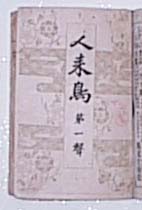 人来鳥
第一聲